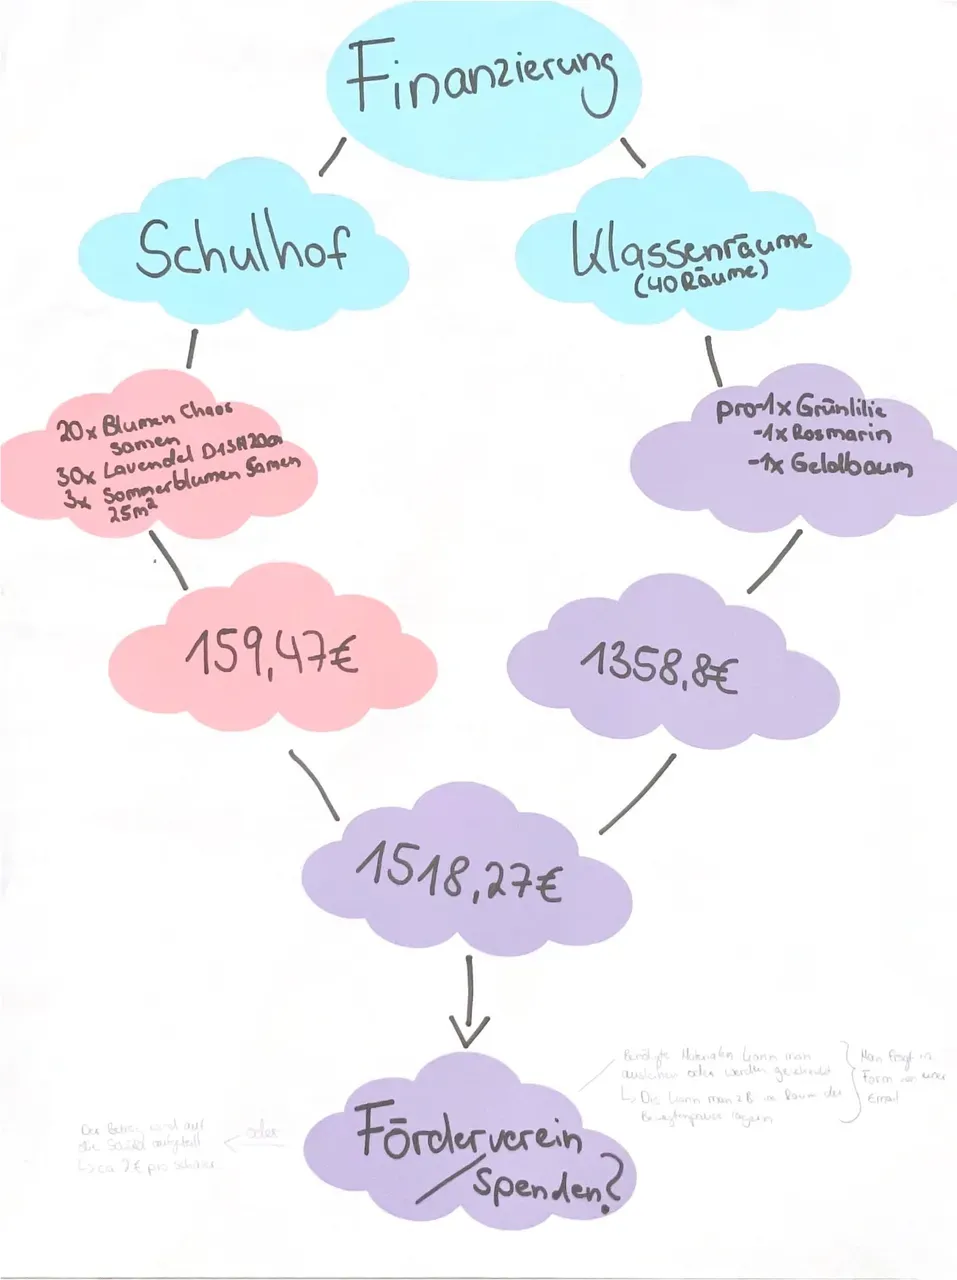 Finanzierung
Schulhof
Klassenräume
(40 Räume)
20x Blumen Chaos
samen
30x Lavendel D13H20cm
3x Sommerblumen Samen
25m²
pro-1x Grünlilie
-1x Rosmarin
-1x Geldbaum
159,47€
1358,8€
1518,27€
Förderverein
/spenden?
Benötigte Materialien kann man
ausleihen oder werden geschenkt
↳ Die kann man z.B. im Raum der
lagern
Man fragt in
Form von einer
Email
oder
Der Betrag wird auf
die Schüler aufgeteilt
↳ ca. 2€ pro Schüler